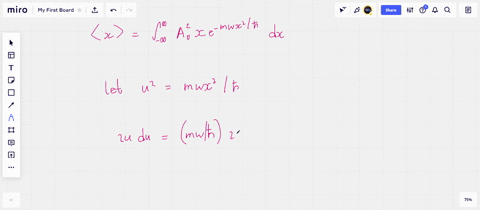 miro
My First Board
Share
⟨x⟩ = ∫_{-∞}^{∞} A₀² x e^{-mωx²/ħ} dx
let u² = mωx²/ħ
2u du = (mω/ħ) 2
75%